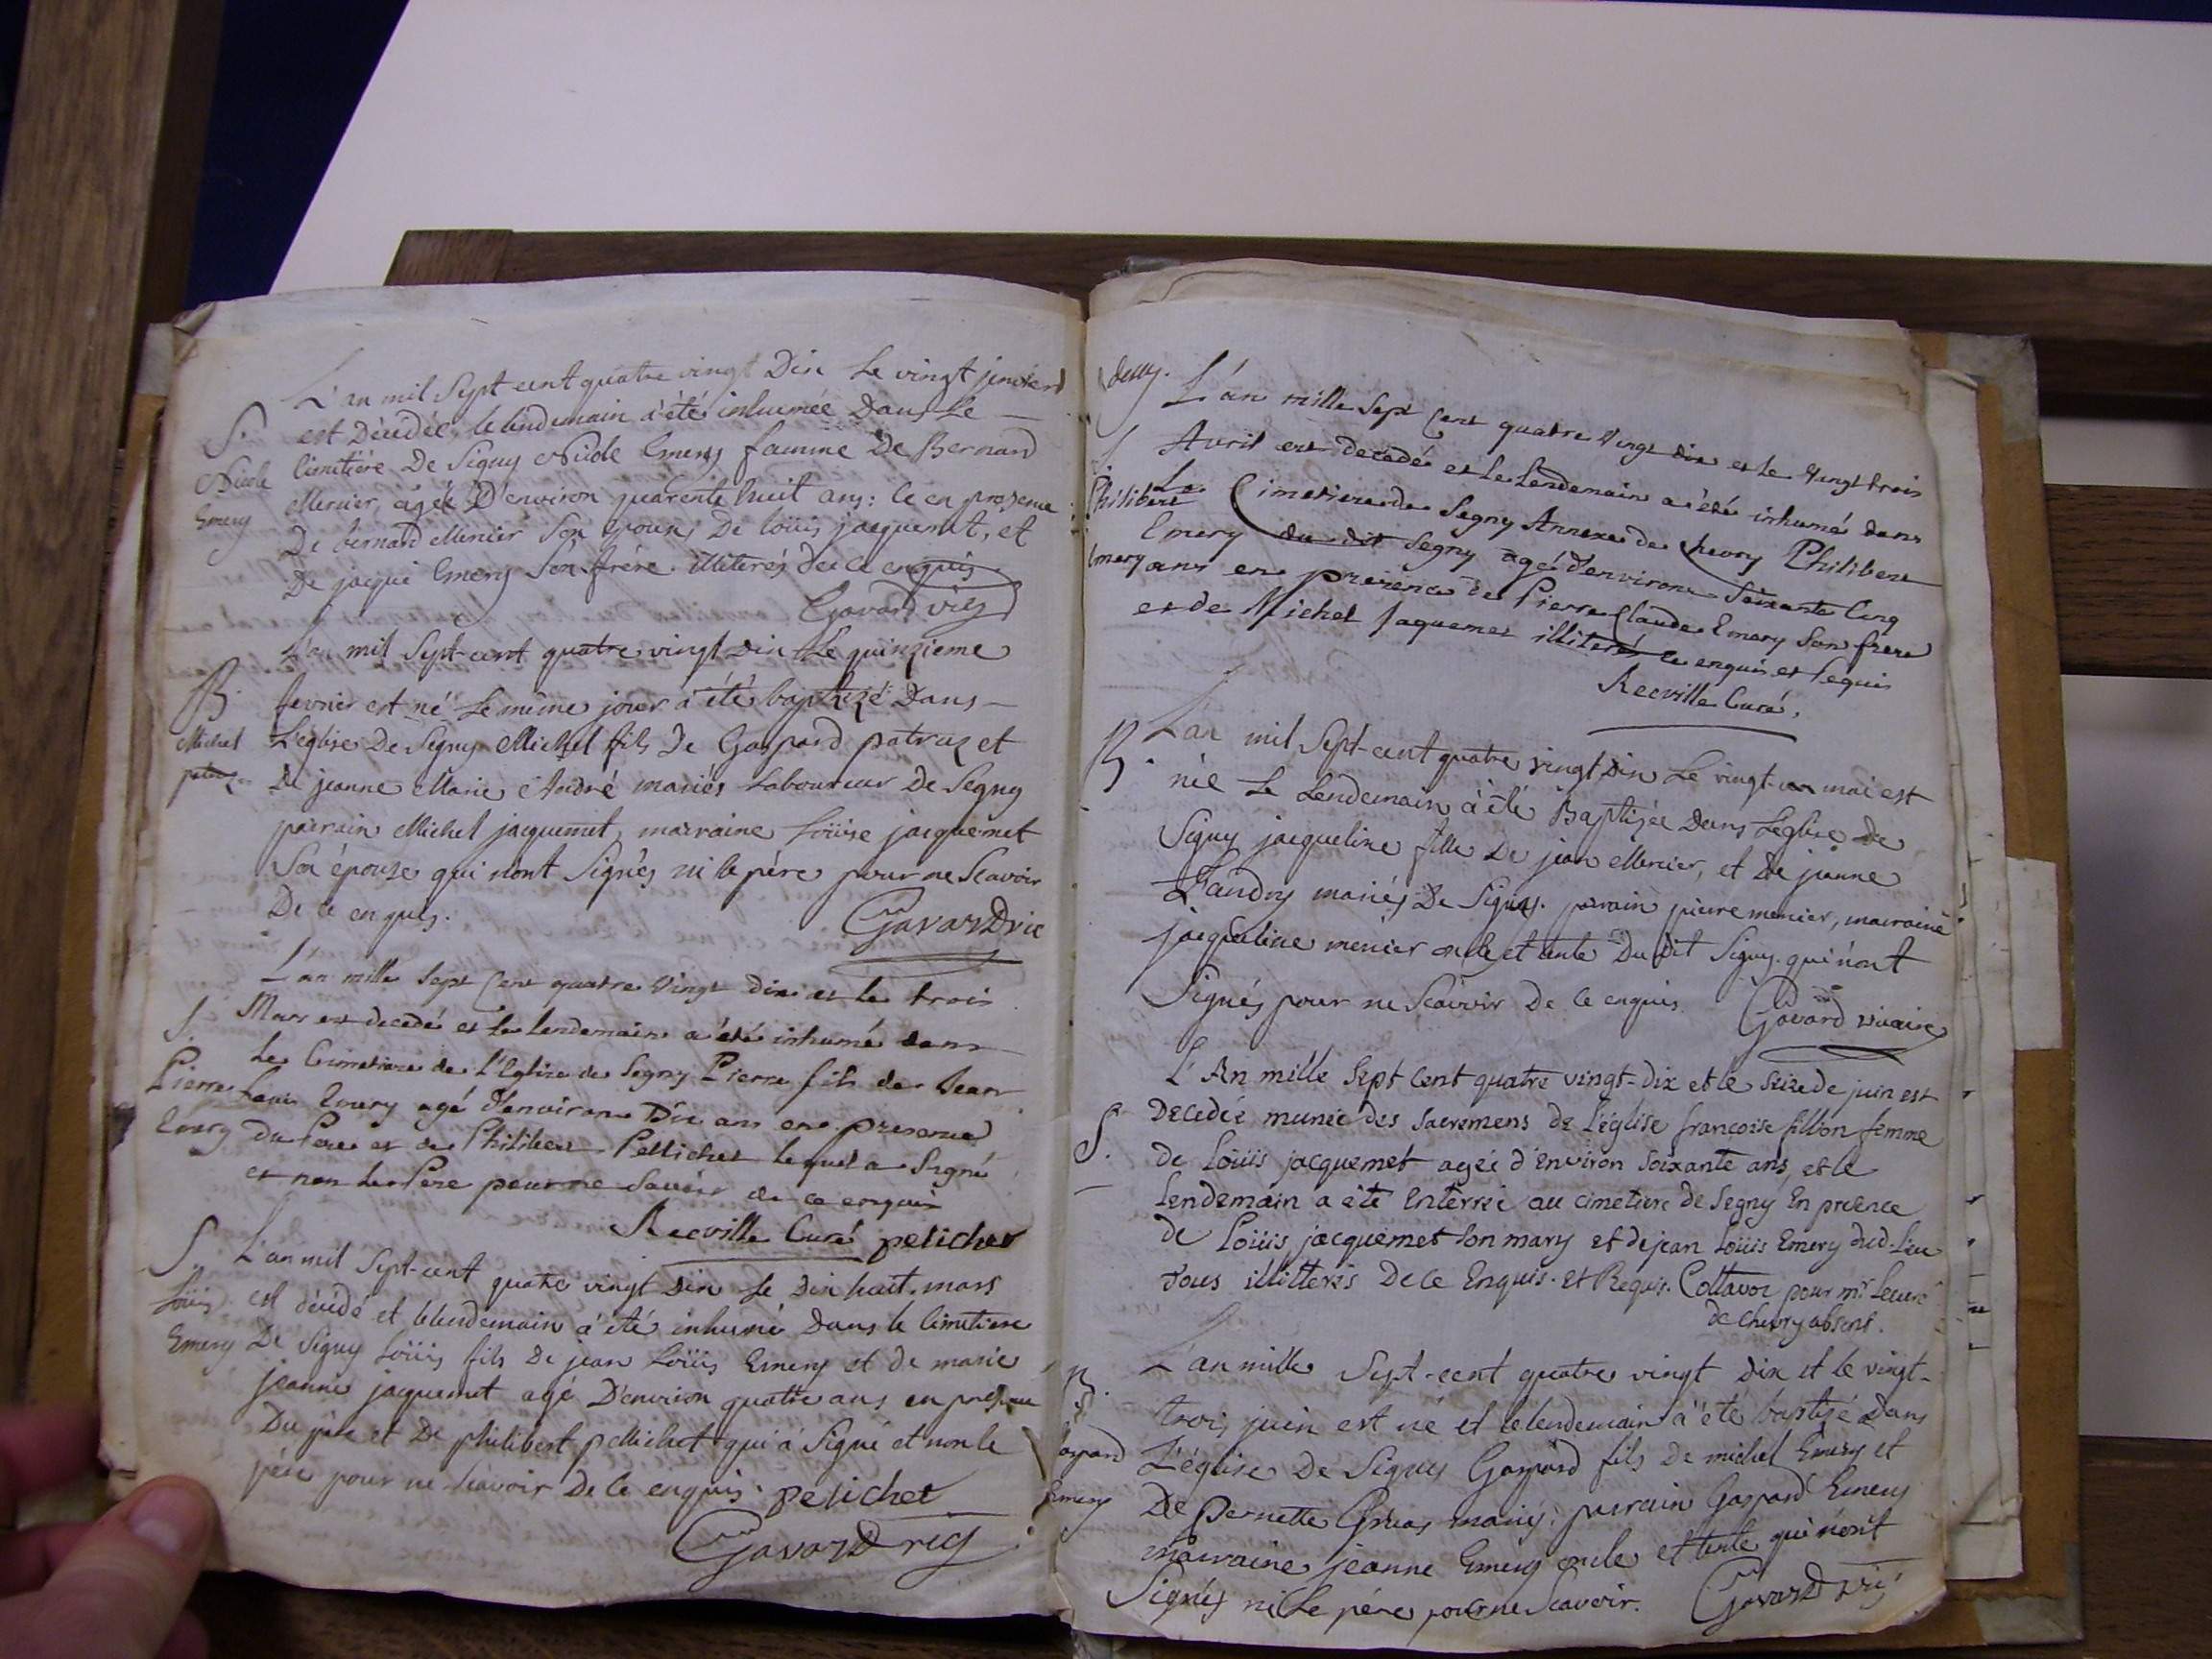 L'an mil Sept cent quatre vingt Dix Le vingt janvier
S. est Décédée, le lendemain a été inhumée Dans Le
Nicole cimetière De Segny Nicole Emery famme De Bernard
Emery Mercier, agée D'environ quarente huit ans: ce en presence
De bernard Mercier Son epoux, De loüis jacquemet, et
De jacque Emery Son frère. illiterés de ce enquis.
Gavard vic
L'an mil Sept-cent quatre vingt dix Le quinzieme
B. fevrier est né Le même jour a été baptizé Dans
Michel L'église De Segny Michel fils De Gaspard patraz et
patraz De jeanne Marie André mariés Laboureur De Segny
parrain Michel jacquemet, marraine Loüise jacquemet
Son épouse qui n'ont Signés ni le père pour ne Scavoir
De ce enquis.
Gavard vic
L'an mille Sept Cent quatre Vingt dix et le trois
S. Mars est decedé et le lendemain a été inhumé dans
Le Cimetiere de l'Eglise de Segny Pierre fils de Jean
Pierre Louis Emery agé d'environ Dix ans en presence
Emery Du Pere et de Philibert Pellichet lequel a Signé
et non le Pere pour ne Savoir de ce enquis
Recville Curé pelichet
S. L'an mil Sept-cent quatre vingt Dix Le Dix huit mars
Loüis est décédé et le lendemain a été inhumé Dans le Cimetiere
Emery De Segny Loüis fils De jean Loüis Emery et de marie
jeanne jacquemet agé D'environ quatre ans en presence
Du père et De philibert pellichet qui a Signé et non le
père pour ne Scavoir De ce enquis. pelichet
Gavard vic
L'an mille Sept Cent quatre Vingt dix et le Vingt trois
S Avril est decedé et le Lendemain a été inhumé dans
Philibert Le Cimetiere de Segny Annexe de Chevry Philibert
Emery du dit Segny agé d'environ Soixante Cinq
Emery ans en presence de Pierre Claude Emery Son frere
et de Michel Jaquemet illiterés ce enquis et Requis
Recville Curé.
B. L'an mil Sept-cent quatre vingt Dix Le vingt-un mai est
née Le Lendemain a été Baptizée Dans L'eglise de
Segny jacqueline fille De jean Mercier, et De jeanne
Landry mariés De Segny. parrain pierre mercier, marraine
jacqueline mercier oncle et tante Du Dit Segny. qui n'ont
Signés pour ne Scavoir De ce enquis. Gavard vicaire
L'An mille Sept Cent quatre vingt-dix et le seize de juin est
S. Decedée munie des sacremens de L'église françoise fillion femme
de Loüis jacquemet agée d'Environ soixante ans, et le
Lendemain a été Enterrée au cimetiere de Segny En presence
de Loüis jacquemet son mary et de jean Loüis Emery dud-Lieu
Tous illitterés De ce Enquis. et Requis. Collavoz pour mr. Le curé
de Chevry absent.
B. L'an mille Sept-cent quatre vingt dix et le vingt-
trois juin est né et le lendemain a été baptizé Dans
Gaspard L'église De Segny Gaspard fils De michel Emery et
Emery De Pernette Gruas mariés: parrain Gaspard Emery
marraine jeanne Emery oncle et tante qui n'ont
Signés ni Le père pour ne Scavoir. Gavard vic